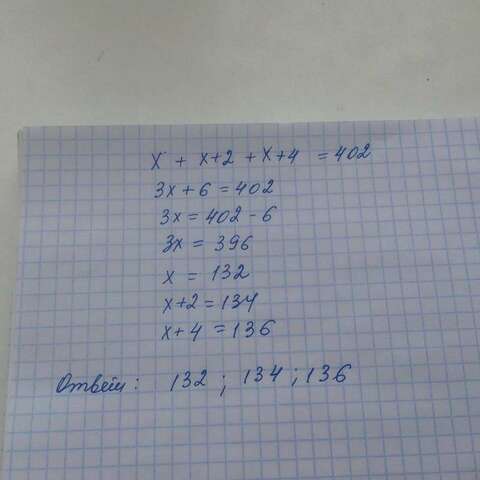 x + x+2 + x+4 = 402
3x + 6 = 402
3x = 402 - 6
3x = 396
x = 132
x+2 = 134
x+4 = 136
Ответ: 132 ; 134 ; 136